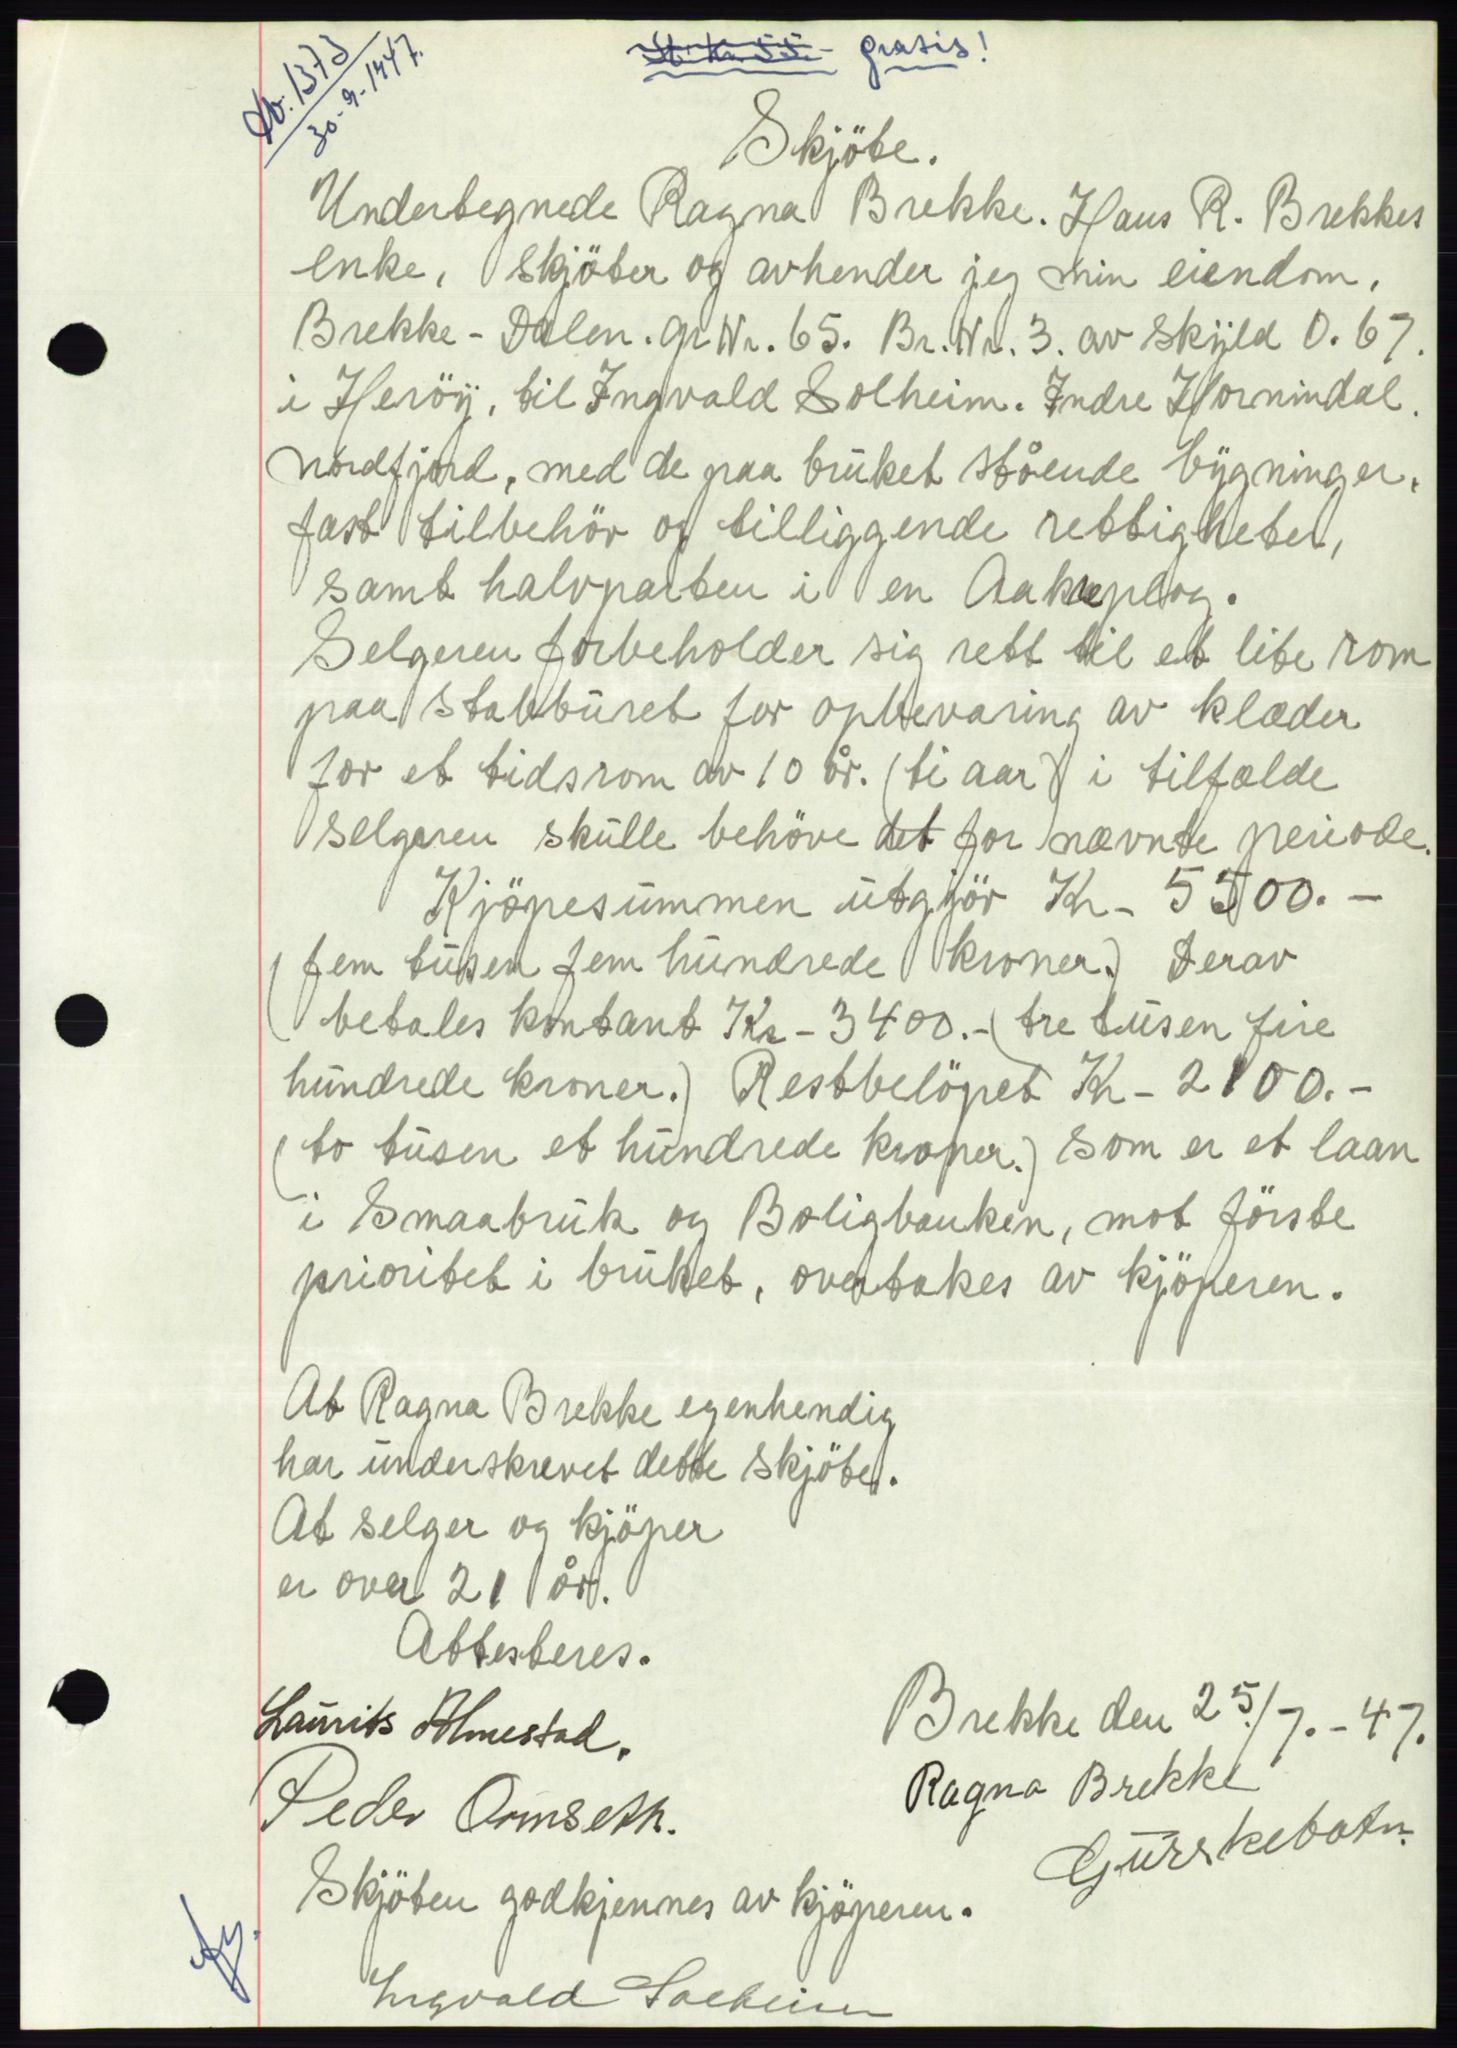 Db. 1373
30-9-1947.
St. kr. 55.- gratis!
Skjöte.
Undertegnede Ragna Brekke. Hans R. Brekkes
enke, skjöter og avhender jeg min eiendom,
Brekke - Dalen. Gr. Nr. 65. Br. Nr. 3. av skyld 0.67.
i Heröy, til Ingvald Solheim. Indre Hornindal.
Nordfjord, med de paa bruket stående bygninger,
fast tilbehör og tilliggende rettigheter,
samt halvparten i en Aakreplog.
Selgeren forbeholder sig rett til et lite rom
paa stabburet for opbevaring av klæder
for et tidsrom av 10 år. (ti aar) i tilfælde
selgeren skulle behöve det for nævnte periode.
Kjöpesummen utgjör Kr - 5500.-
(fem tusen fem hundrede kroner.) Derav
betales kontant Kr - 3400.- (tre tusen fire
hundrede kroner.) Restbelöpet Kr - 2100.-
(to tusen et hundrede kroner.) som er et laan
i Smaabruk og Boligbanken, mot förste
prioritet i bruket, overtakes av kjöperen.
At Ragna Brekke egenhendig
har underskrevet dette skjöte.
At selger og kjöper
er over 21 år.
Attesteres.
Laurits Almestad.
Peder Ormseth.
Brekke den 25/7. - 47.
Ragna Brekke
Gurskebotn.
Skjöten godkjennes av kjöperen.
Ingvald Solheim